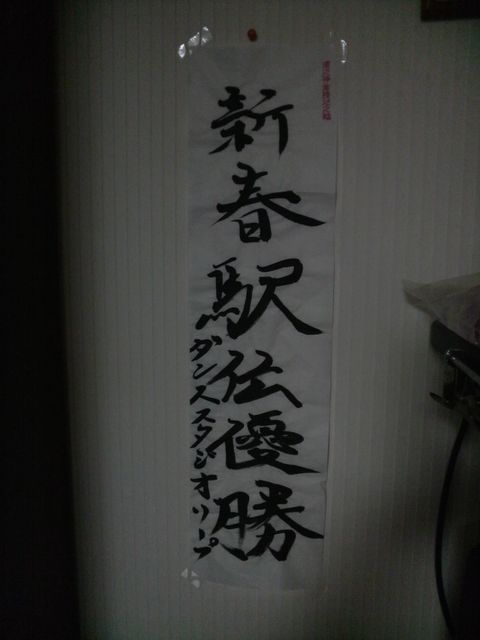 新春駅伝優勝
ダンススタジオリープ